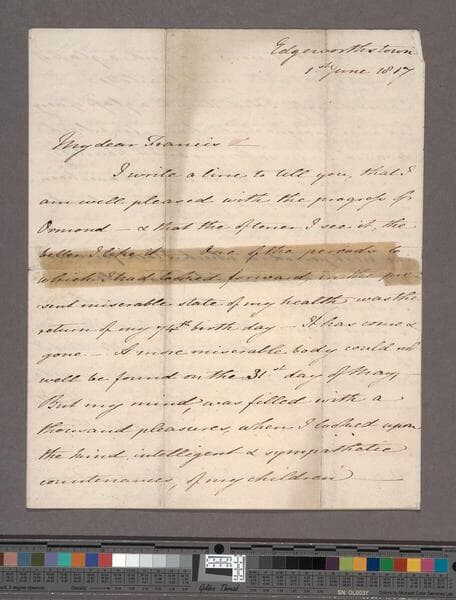 Edgeworthstown
1st June 1817
My dear Francis
I write a line to tell you, that I
am well pleased with the progress of
Ormond — & that the oftener I see it, the
better I like it — One of the periods to
which I had looked forward, in the pre
sent miserable state of my health was the
return of my 74th birth day — It has come &
gone — A more miserable body could not
well be found on the 31st day of May,
But my mind, was filled with a
thousand pleasures, when I looked upon
the kind, intelligent & sympathetic
countenances, of my children —
Golden Thread